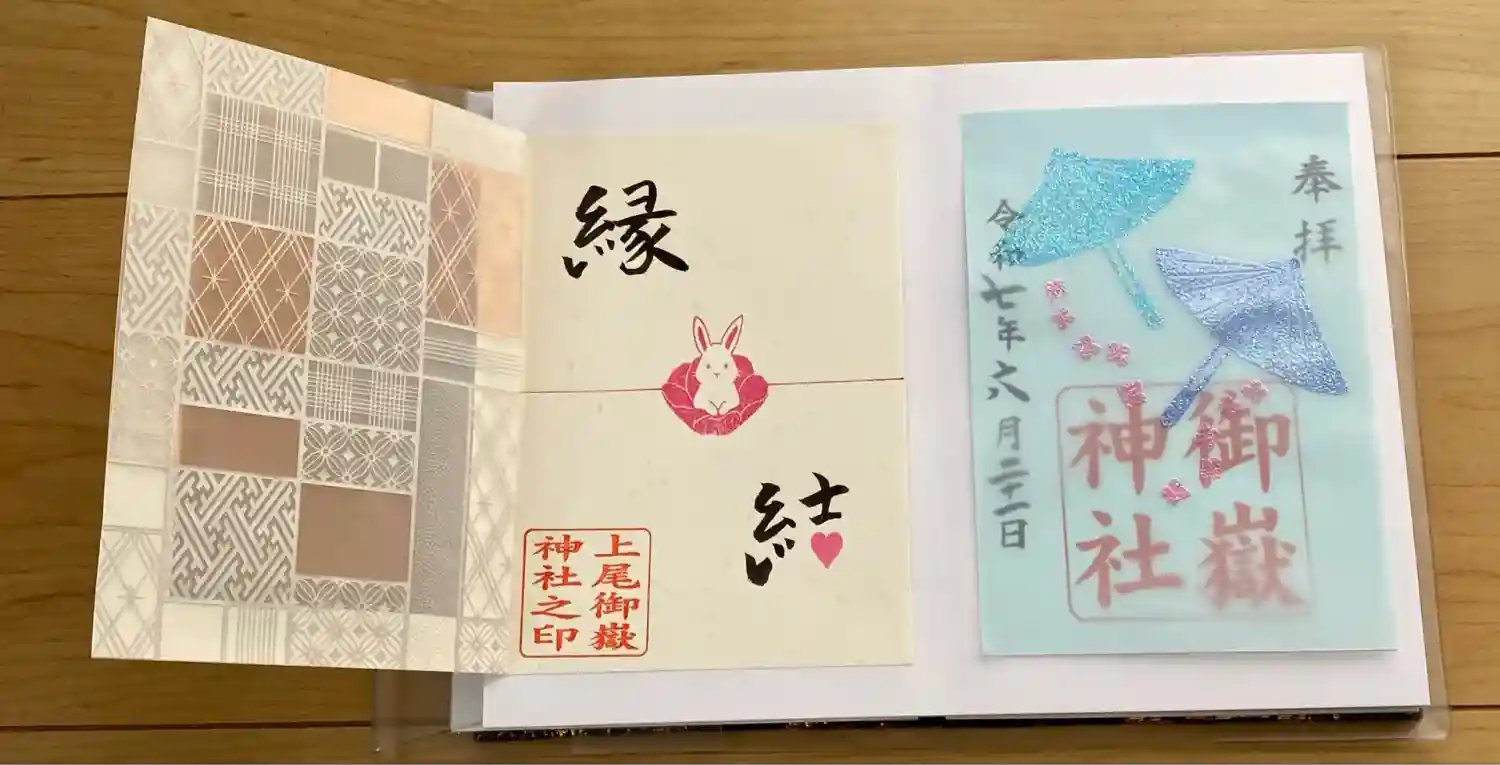 縁
結
上尾御嶽
神社之印
奉拝
御嶽
神社
令和七年六月二十一日